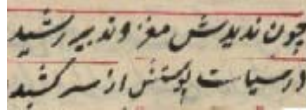 چون ندیدش مغز و تدبیر رشید
در سیاست پوستش از سر کشید